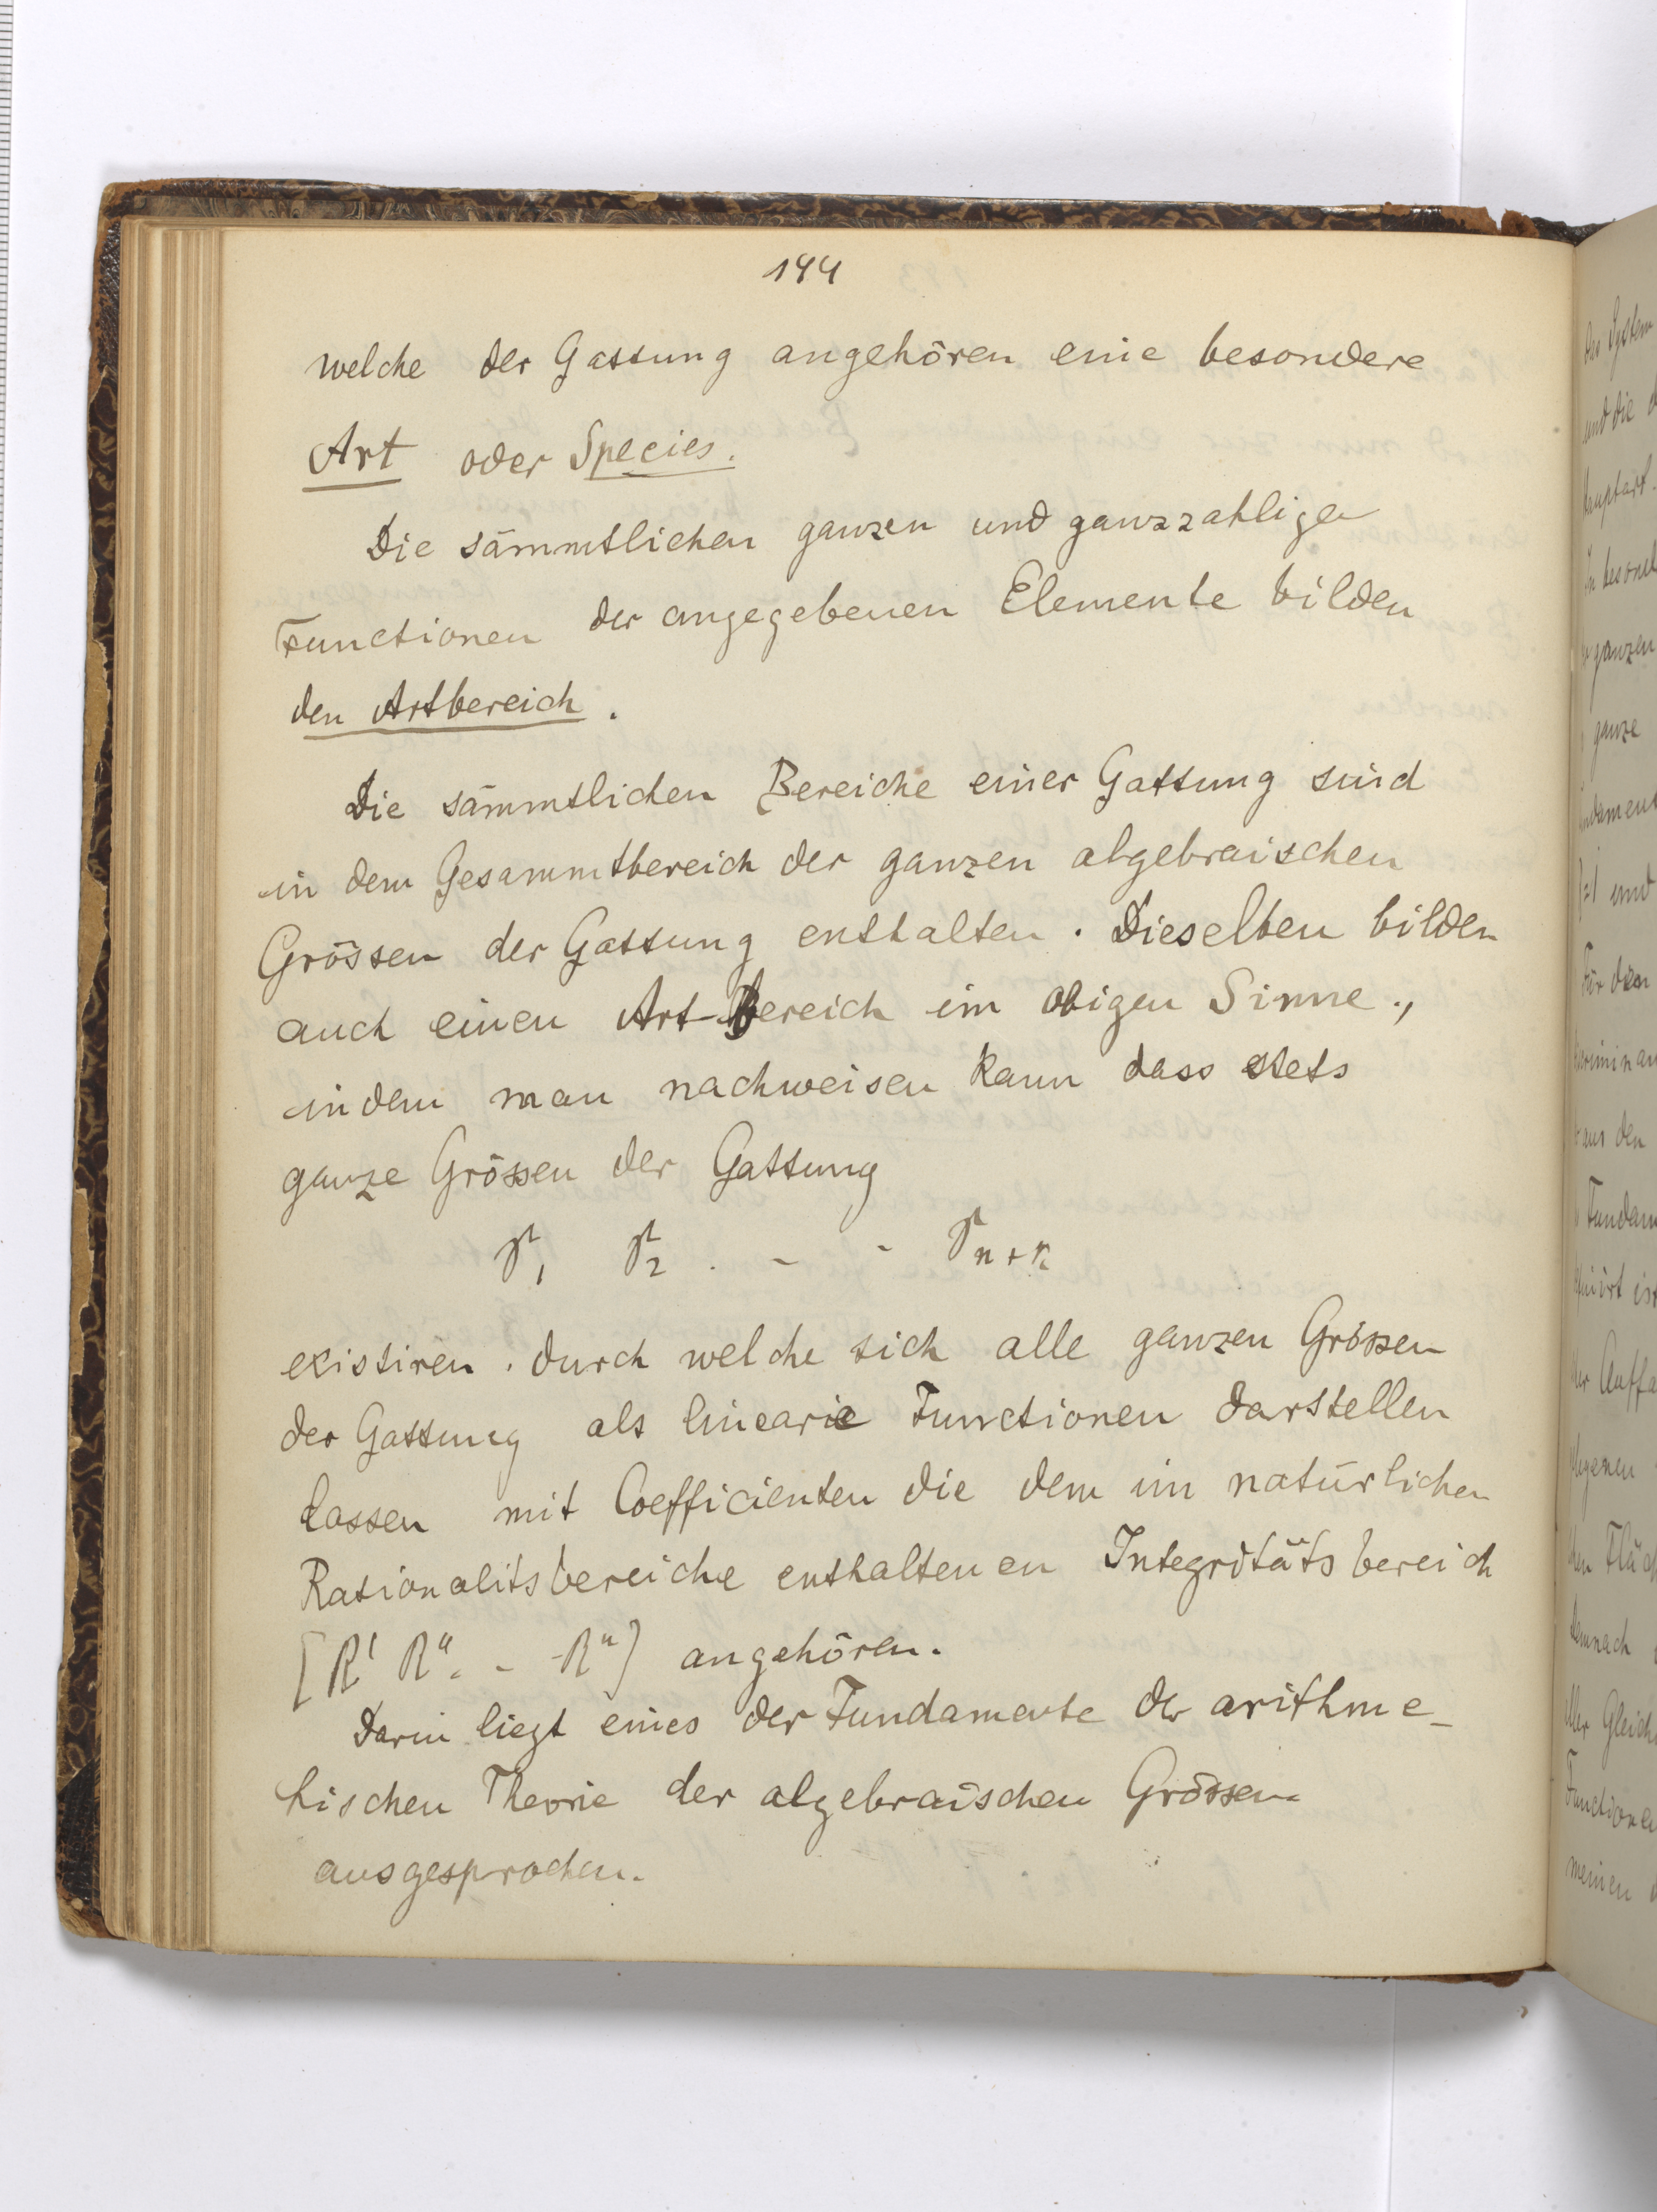 144
welche der Gattung angehören eine besondere
Art oder Species.
Die sämmtlichen ganzen und ganzzahligen
Functionen der angegebenen Elemente bilden
den Artbereich.
Die sämmtlichen Bereiche einer Gattung sind
in dem Gesammtbereich der ganzen algebraischen
Grössen der Gattung enthalten. Dieselben bilden
auch einen Art-Bereich im obigen Sinne.,
indem man nachweisen kann dass stets
ganze Grössen der Gattung
existiren. durch welche sich alle ganzen Grössen
der Gattung als lineare Functionen darstellen
lassen mit Coefficienten die dem im natürlichen
Rationalitsbereiche enthaltenen Integritätsbereich
[R' R''. - - Rⁿ] angehören.
Darin liegt eines der Fundamente der arithme-
tischen Theorie der algebraischen Grössen
ausgesprochen.
das System
und die
Hauptart.
ganzen
ganze
und
Für den
aus den
Fundam
ist